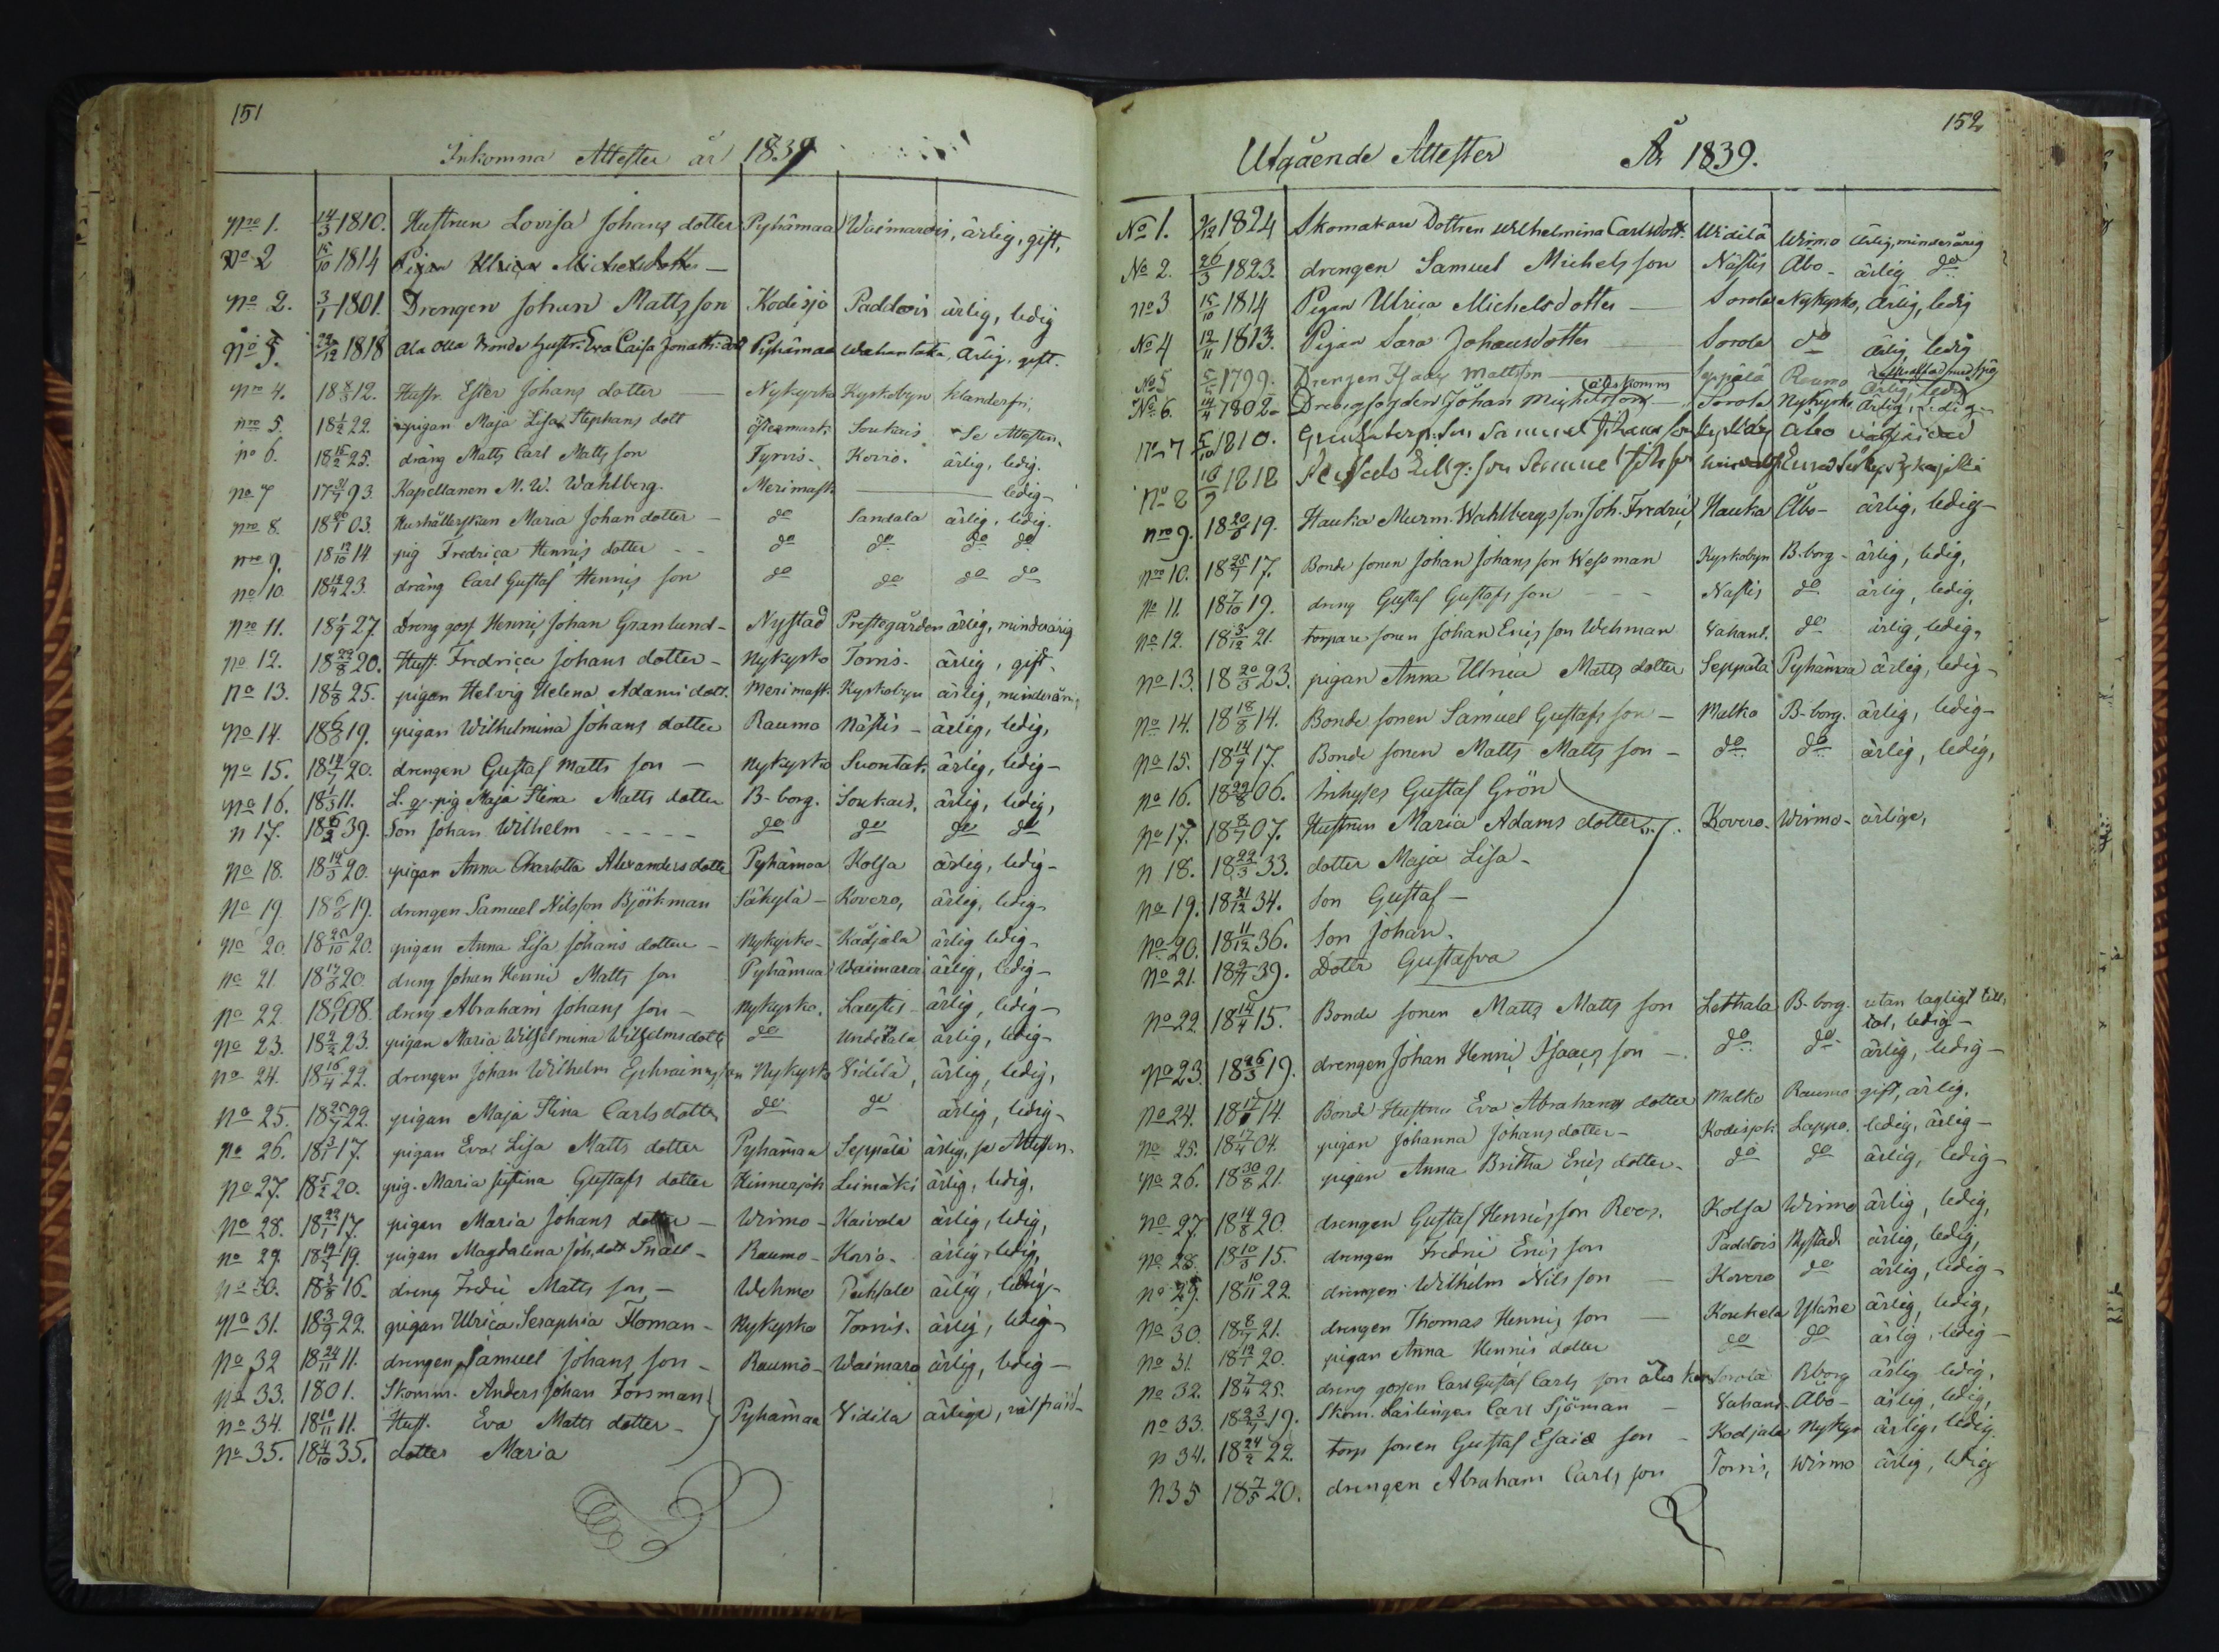 151
Inkomna Attester år 1839
Nro 1. 14/3 1810. Hustrun Lovisa Johans dotter Pyhämaa Waimarois, ärlig, gift,
No 2 15/10 1814 Pigan Ulrica Michelsdotter —
No 2. 3/1 1801. Drengen Johan Matts son Kodisjo Paddois ärlig, ledig
No 3. 1818 Bonde Hustr. Eva Caisa Pyhämaa Wahantaka, Ärlig, gift.
Nro 4. 18 8/8 12. Hustr. Ester Johans dotter — Nykyrko Kyrkobyn klanderfri,
Nro 5. 18 1/2 22. pigan Maja Lisa Stephans dott Östermark Soukais Se Attesten.
No 6. 18 15/2 25. dräng Matts Carl Matts son Tyrvis. Korio. ärlig, ledig.
No 7 17 31/7 93. Kapellanen M. W. Wahlberg. Merimask — ledig-
Nro 8. 18 26/1 03. Hushållerskan Maria Johan dotter — do Sandala ärlig, ledig.
Nro 9. 18 12/10 14 pig Fredrica Henrics dotter - - do do do do
No 10 18 12/4 23. dräng Carl Gustaf Henrics son do do do do
Nro 11. 18 1/9 27. Dreng goss Henric Johan Granlund - Nystad Prestegården ärlig, minderårig
No 12. 18 22/8 20. Hust. Fredrica Johans dotter - Nykyrko Torris. ärlig, gift.
No 13. 18 1/8 25. pigan Helvig Helena Adams dott. Merimask. Kyrkobyn ärlig, minderåri
No 14. 18 6/8 19. pigan Wilhelmina Johans dotter Raumo Nästis - ärlig, ledig,
No 15. 18 12/7 20. drengen Gustaf Matts son — Nykyrko Suontak. ärlig, ledig-
No 16. 18 1/3 11. L. q. pig Maja Stina Matts dotter B-borg. Soukais, ärlig, ledig,
N 17. 18 6/2 39. Son Johan Wilhelm - - - - - do do do do
No 18. 18 19/3 20. pigan Anna Charlotta Alexanders dotter Pyhämaa Kolsa ärlig, ledig-
No 19 18 6/8 19. drengen Samuel Nilsson Björkman Säkylä - Kovero, ärlig, ledig-
No 20. 18 25/10 20. pigan Anna Lisa Johans dotter - Nykyrko - Kodjala ärlig ledig-
No 21. 18 17/8 20. dreng Johan Henric Matts son Pyhämaa Waimaroi ärlig, ledig-
No 22. 18 08. dreng Abraham Johans son - Nykyrko. Laustis - ärlig, ledig-
No 23. 18 2/2 23. pigan Maria Wilhelmina Wilhelmsdotter do Undstala ärlig, ledig-
No 24. 18 16/4 22. drengen Johan Wilhelm Ephraims son Nykyrko Vidilä, ärlig, ledig,
No 25. 18 25/7 22. pigan Maja Stina Carls dotter do do ärlig, ledig-
No 26. 18 3/1 17. pigan Eva Lisa Matts dotter Pyhämaa Seppälä ärlig, se Attesten.
No 27. 18 5/2 20. pig. Maria Justina Gustafs dotter Hinnerjoki Leimäki ärlig, ledig,
No 28. 18 22/1 17. pigan Maria Johans dotter - Wirmo - Kaivola ärlig, ledig,
No 29. 18 19. pigan Magdalena Joh. dott Snäll - Raumo - Korio. ärlig, ledig,
No 30. 18 3/8 16. dreng Fredric Matts son, - Wehmo ärlig, ledig-
No 31. 18 3/9 22. pigan Ulrica Seraphia Homan - Nykyrko Torris. ärlig, ledig-
No 32 18 24/11 11. drengen Samuel Johans son - Raumo - Waimaro ärlig, ledig-
No 33. 1801. Skomm. Anders Johan Forsman
No 34. 18 10/11 11. Hust. Eva Matts dotter - Pyhämaa Vidila ärlige, väl fräjd-
No 35. 18 4/10 35. dotter Maria
152
Utgående Attester År 1839.
No 1. 9/12 1824 Skomakare Dottren Wilhelmina Carlsdott. Widilä Wirmo Ärlig, minderårig
No 2. 26/3 1823. drengen Samuel Michels son Nästis Åbo - ärlig do
No 3 15/10 1814 Pigan Ulrica Michelsdotter — Sorola Nykyrko, Ärlig, ledig
No 4 12/11 1813. Pigan Sara Johansdotter — Sorola do ärlig, ledig
No 5 1799. Drengen Isaac Mattsson — Seppälä Raumo Ärlig, ledig
No 6. 1802. Johan Michelsson — Sorola Nykyrko Ärlig, ledig-
No 7 5/10 1810. Samuel Johansson Åbo
No 8 16/9 1818 son Samuel Joh. son
Nro 9. 18 20/8 19. Hauka Murm. Wahlbergs son Joh. Fredric Hauka Åbo - ärlig, ledig-
Nro 10. 18 25/7 17. Bonde sonen Johan Johans son Wessman Kyrkobyn B-borg - ärlig, ledig,
No 11. 18 7/10 19. dreng Gustaf Gustafs son - - - Nästis do ärlig, ledig,
No 12. 18 3/12 21. torpare sonen Johan Erics son Wehman Vahand. do ärlig, ledig,
No 13. 18 20/3 23. pigan Anna Ulrica Matts dotter Seppälä Pyhämaa ärlig, ledig-
No 14. 18 18/8 14. Bonde sonen Samuel Gustafs son - Malko B-borg. ärlig, ledig-
No 15. 18 14/9 17. Bonde sonen Matts Matts son - do do ärlig, ledig,
No 16. 18 22/8 06. Inhyses Gustaf Grön
No 17. 18 8/7 07. Hustrun Maria Adams dotter Kovero - Wirmo - ärlige,
N 18. 18 22/3 33. dotter Maja Lisa -
No 19. 18 21/12 34. Son Gustaf -
No 20. 18 11/12 36. Son Johan.
No 21. 18 39. Doter Gustafva
No 22 18 14/4 15. Bonde sonen Matts Matts son Lethala B-borg. utan lagligt till-
tal, ledig-
No 23. 18 26/3 19. drengen Johan Henric Isaacs son -. do do ärlig, ledig-
No 24. 18 17 14. Bonde Hustru Eva Abrahams dotter Malko Raumo gift, ärlig.
No 25. 18 17/4 04. pigan Johanna Johans dotter - Kodisjok Lappo. ledig, ärlig-
No 26. 18 30/8 21. pigan Anna Britha Erics dotter - do do ärlig, ledig-
No 27. 18 14/8 20. drengen Gustaf Henrics son Roos. Kolsa Wirmo ärlig, ledig,
No 28. 18 10/3 15. drengen Fredric Erics son Paddois Nystad. ärlig, ledig,
No 29. 18 10/11 22. drengen Wilhelm Nils son — Kovero do ärlig, ledig-
No 30. 18 8/7 21. drengen Thomas Henrics son — Kouhela Yläne ärlig, ledig,
No 31. 18 19/1 20. pigan Anna Henrics dotter do do ärlig, ledig-
No 32. 18 7/4 25. dreng gossen Carl Gustaf Carls son Sorola B-borg ärlig ledig,
No 33. 18 23 19. Skom. Lärlingen Carl Sjöman — Vahand. Åbo - ärlig, ledig,
N 34. 18 24/2 22. torp sonen Gustaf Esaias son - Kodjala Nykyr ärlig, ledig.
N 35 18 7/5 20. drengen Abraham Carls son Torris, Wirmo ärlig, ledig